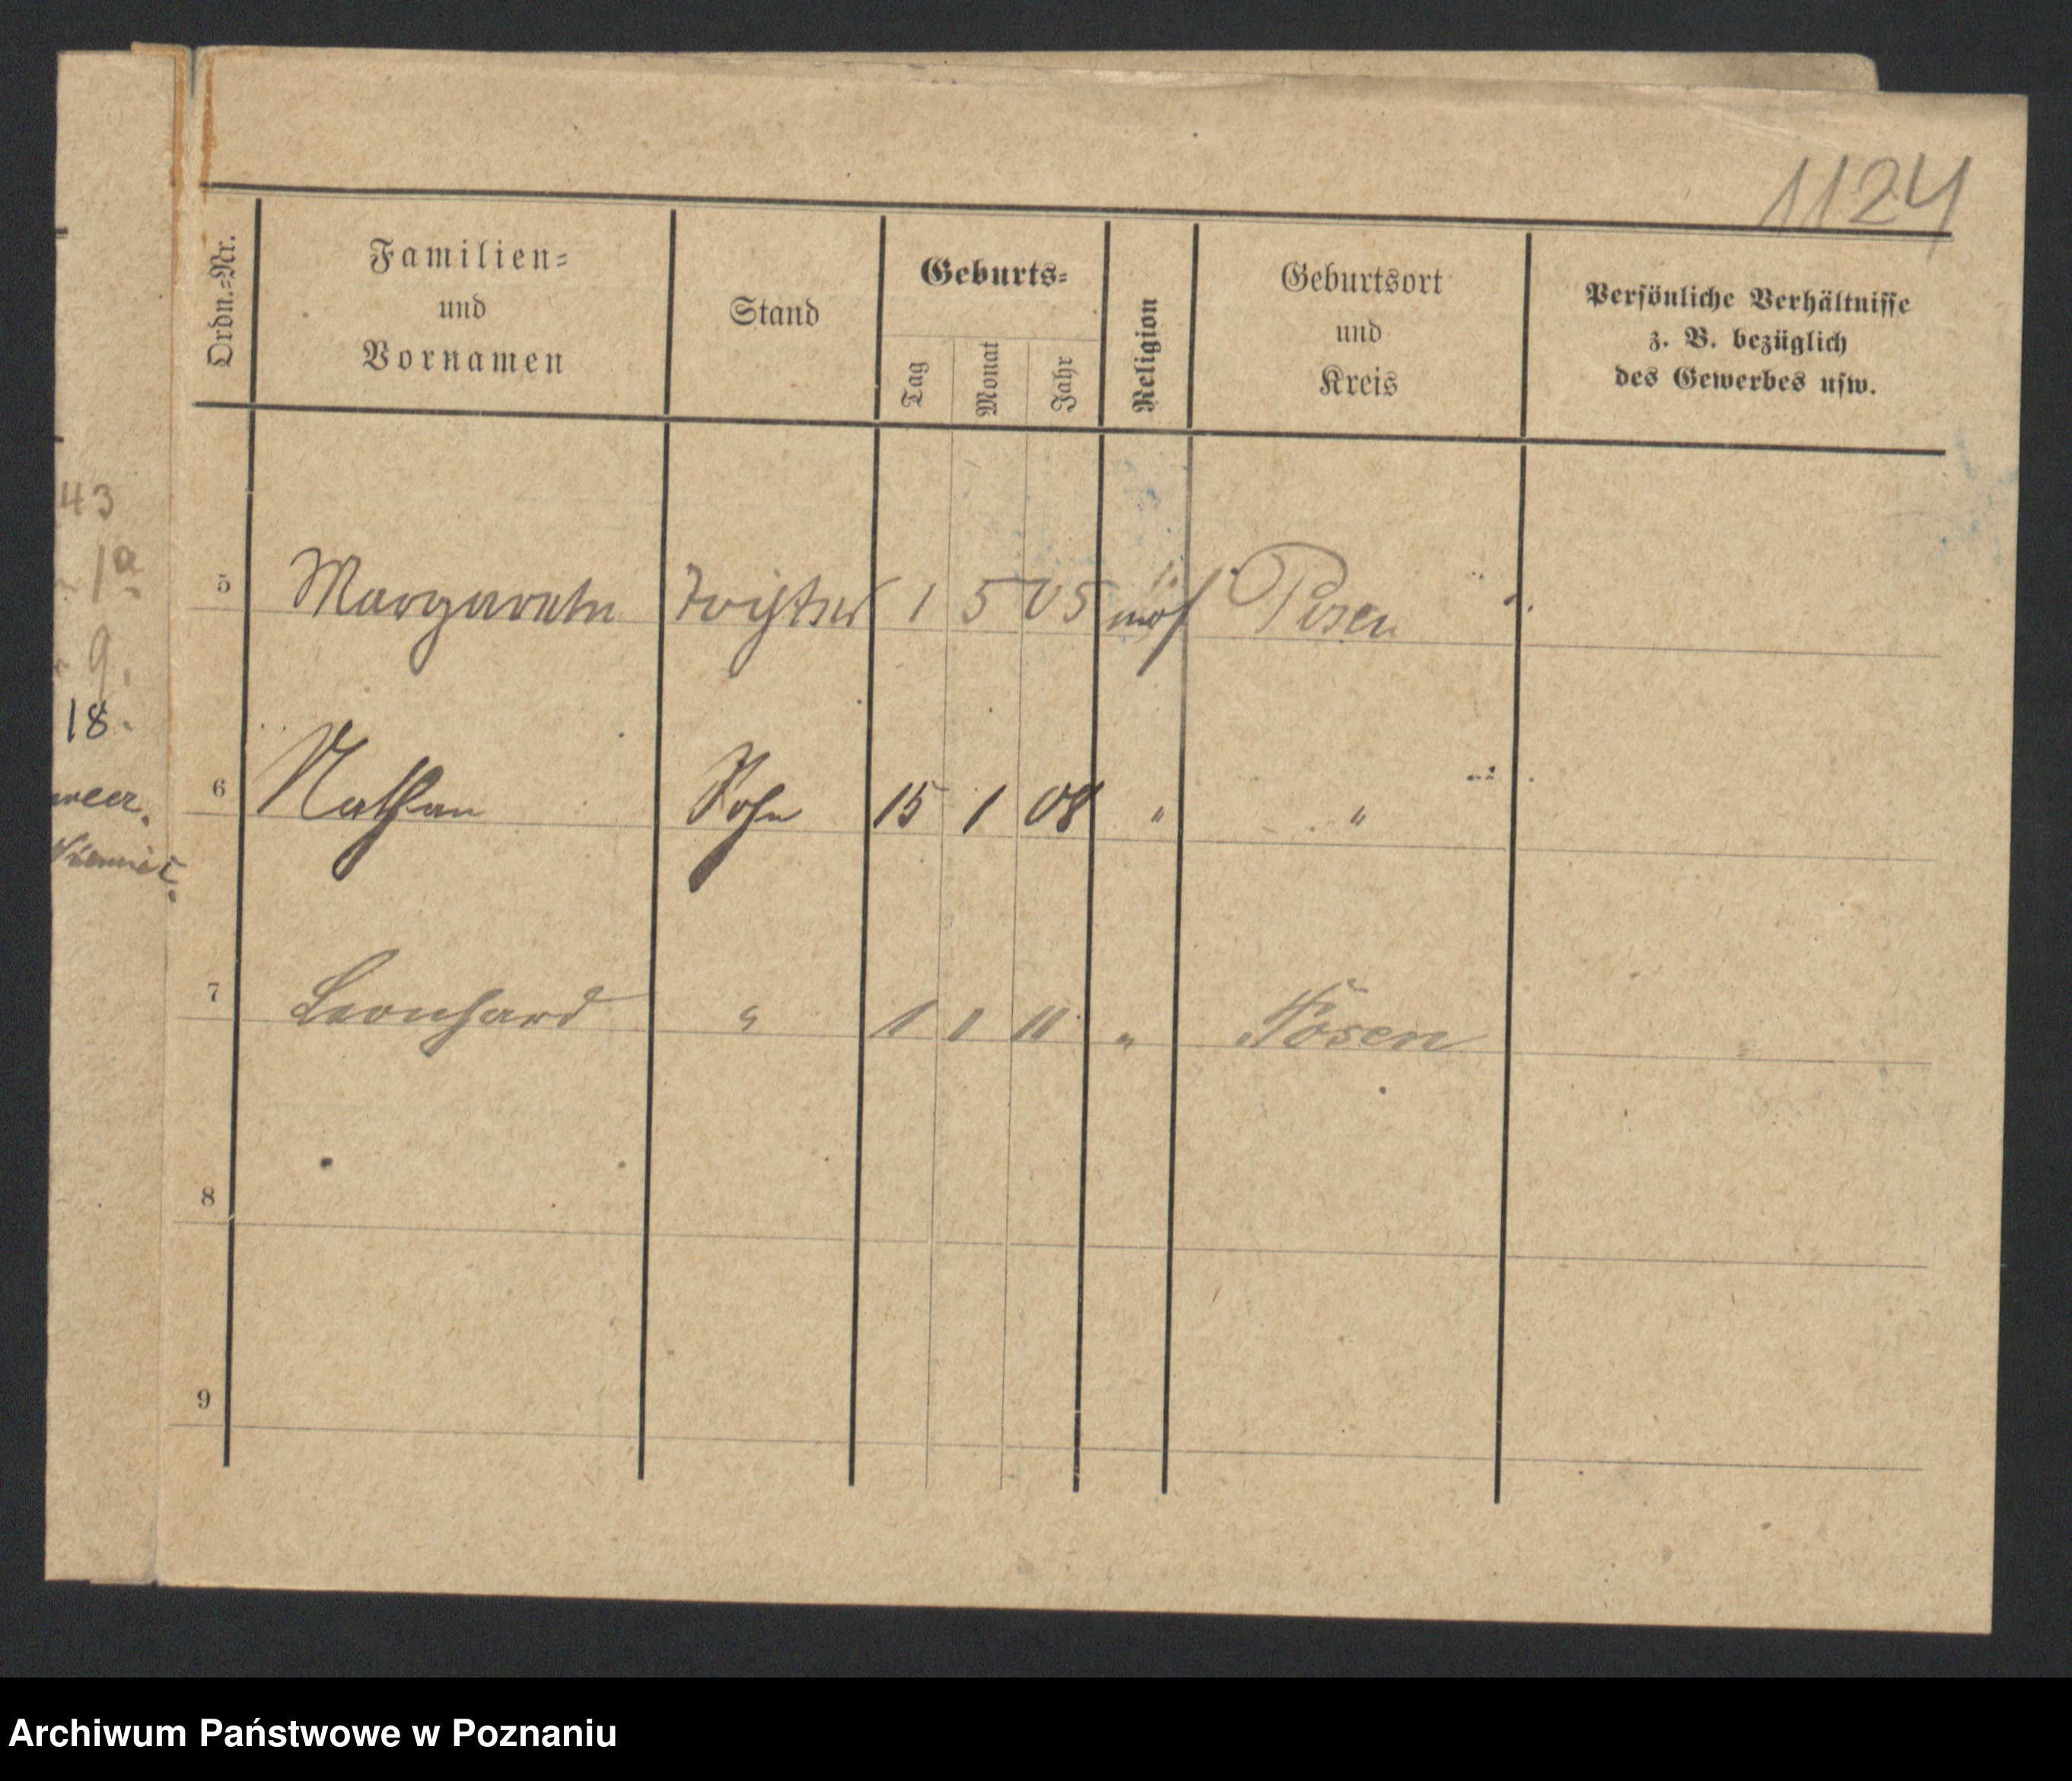 1124
Ordn.=Nr.
Familien=
und
Vornamen
Stand
Geburts=
Tag
Monat
Jahr
Religion
Geburtsort
und
Kreis
Persönliche Verhältnisse
z. B. bezüglich
des Gewerbes usw.
43
1a
9.
18.
5 Margarethe 1 5 05 mos Posen
6 Nathan Sohn 15 1 08 " "
7 Leonhard " 1 1 11 " Posen
8
9
Archiwum Państwowe w Poznaniu